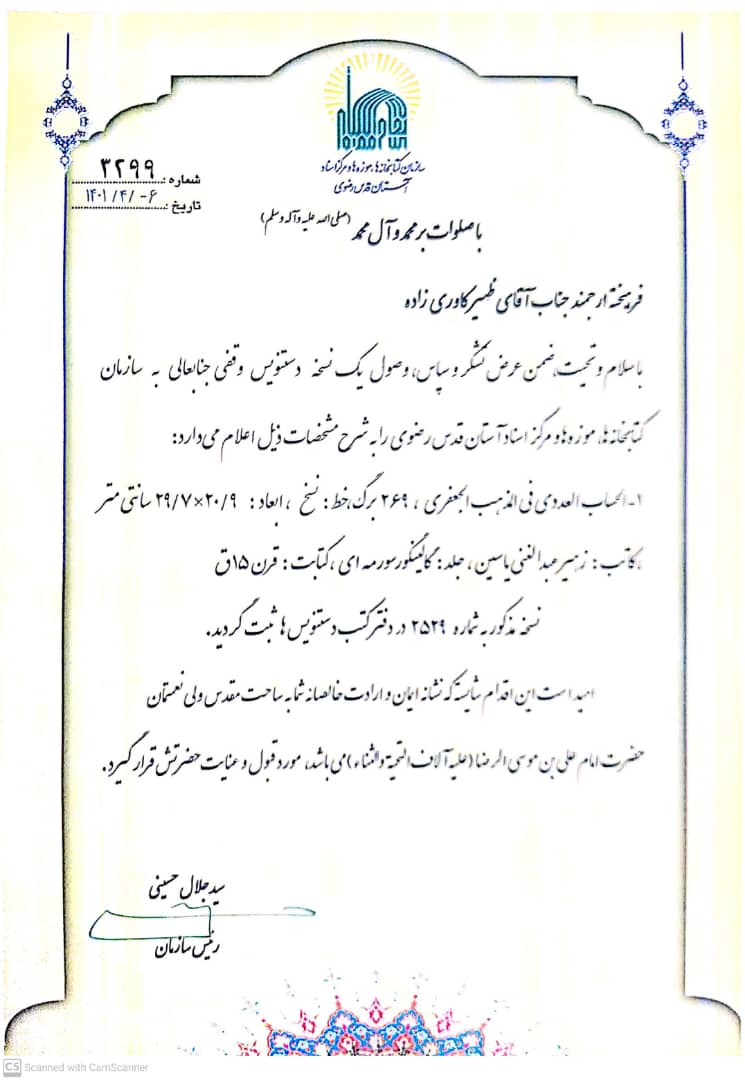 سازمان کتابخانه‌ها، موزه‌ها و مرکز اسناد
آستان قدس رضوی
شماره: ۳۲۹۹
تاریخ: ۱۴۰۱/۴/-۶
با صلوات بر محمد و آل محمد (صلی الله علیه و آله وسلم)
فرهیخته ارجمند جناب آقای ظهیر کاوری زاده
با سلام و تحیت، ضمن عرض تشکر و سپاس، وصول یک نسخه دستنویس وقفی جنابعالی به سازمان
کتابخانه‌ها، موزه‌ها و مرکز اسناد آستان قدس رضوی را به شرح مشخصات ذیل اعلام می‌دارد:
۱- الحساب العددی فی المذهب الجعفری ، ۲۶۹ برگ، خط: نسخ ، ابعاد: ۲۰/۹×۲۹/۷ سانتی متر
، کاتب: زهیر عبدالغنی یاسین ، جلد: گالینگور سورمه ای ، کتابت: قرن ۱۵ق
نسخه مذکور به شماره ۲۵۲۹ در دفتر کتب دستنویس ها ثبت گردید.
امید است این اقدام شایسته که نشانه ایمان و ارادت خالصانه شما به ساحت مقدس ولی نعمتمان
حضرت امام علی بن موسی الرضا (علیه آلاف التحیة والثناء) می باشد، مورد قبول و عنایت حضرتش قرار گیرد.
سید جلال حسینی
رئیس سازمان
CS Scanned with CamScanner